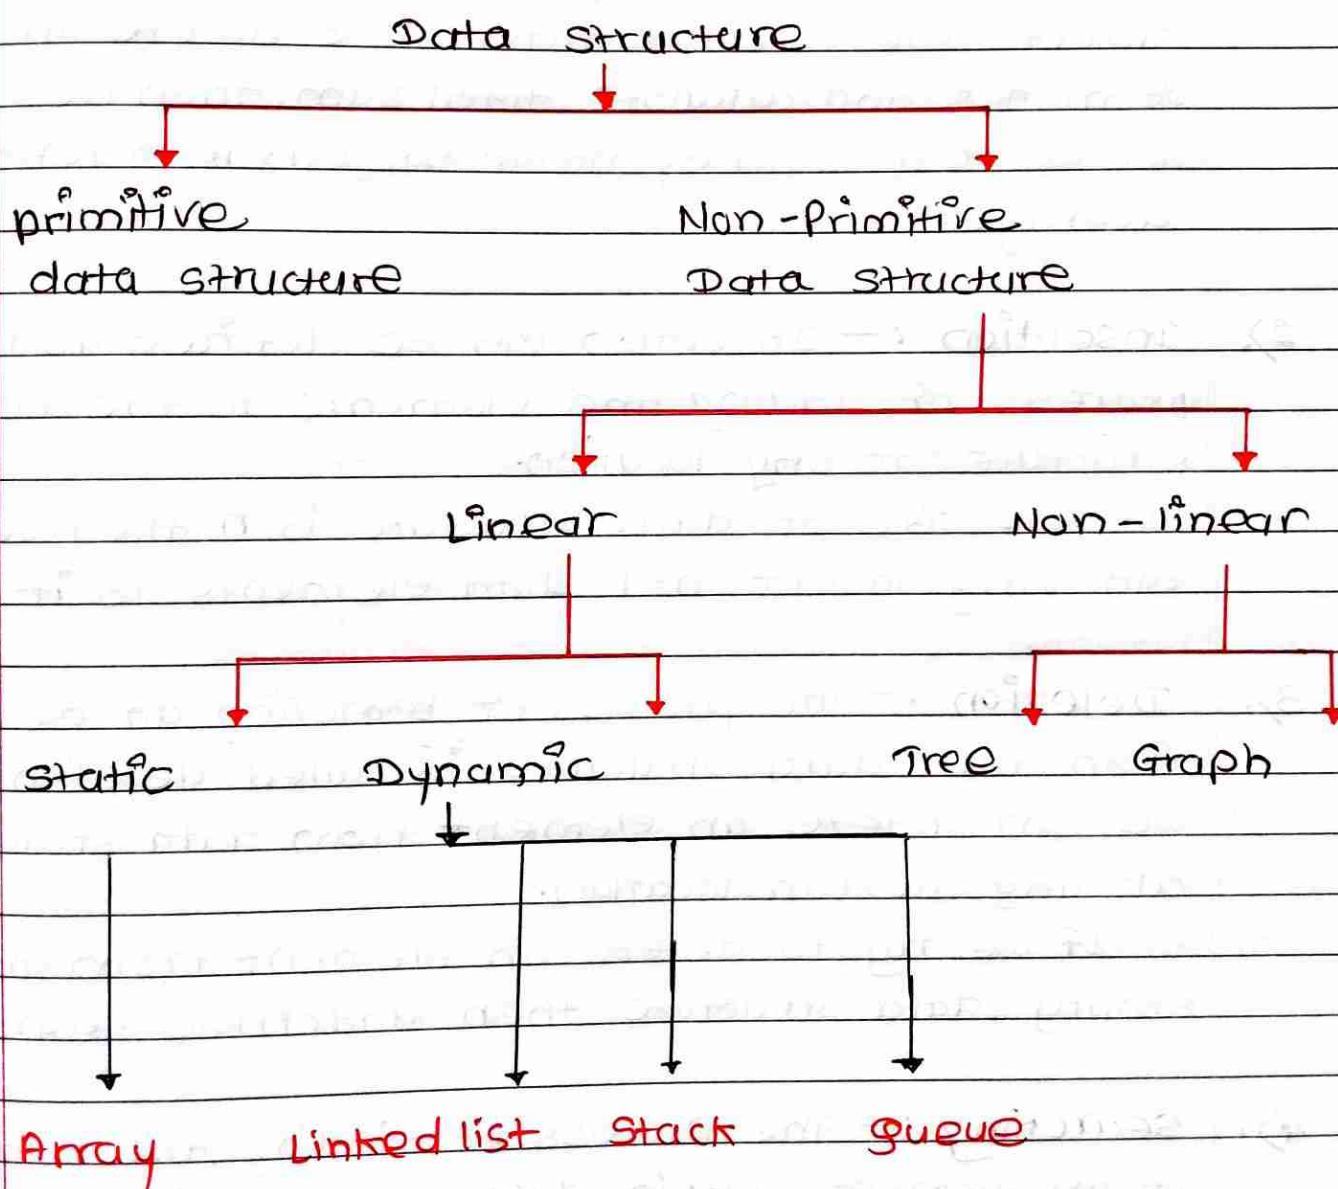 Data structure
primitive Non-Primitive
data structure Data structure
Linear Non-linear
Static Dynamic Tree Graph
Array Linked list Stack queue